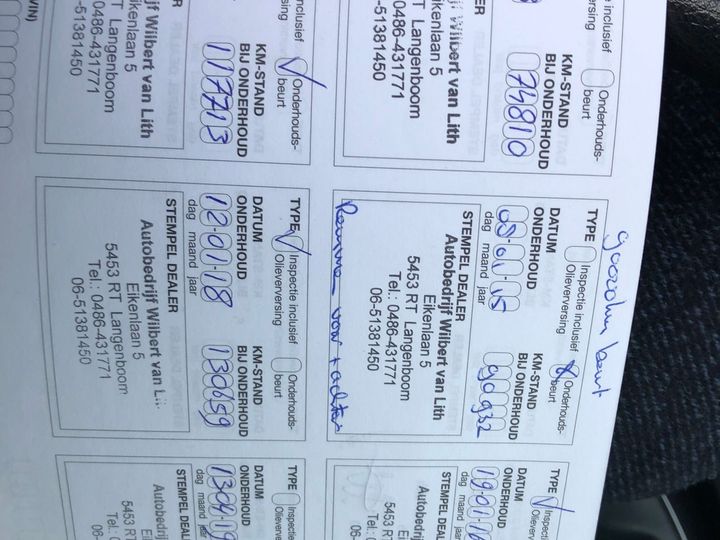 inclusief
versing
Onderhouds-
beurt
KM-STAND
BIJ ONDERHOUD
74810
jf Wilbert van Lith
Eikenlaan 5
T Langenboom
0486-431771
-51381450
beurt
TYPE
Inspectie inclusief
Olieverversing
Onderhouds-
beurt
DATUM
ONDERHOUD
KM-STAND
BIJ ONDERHOUD
08-01-15
90932
dag maand jaar
STEMPEL DEALER
Autobedrijf Wilbert van Lith
Eikenlaan 5
5453 RT Langenboom
Tel.: 0486-431771
06-51381450
Remmen voor + achter
TYPE
Inspectie
Olieverversing
DATUM
ONDERHOUD
19-01-16
dag maand ja
STEMPEL DEALER
Autobedrijf
5453 RT
Tel.:
06-
inclusief
versing
Onderhouds-
beurt
KM-STAND
BIJ ONDERHOUD
117713
jf Wilbert van Lith
Eikenlaan 5
T Langenboom
0486-431771
-51381450
TYPE
Inspectie inclusief
Olieverversing
Onderhouds-
beurt
DATUM
ONDERHOUD
KM-STAND
BIJ ONDERHOUD
12-01-18
130659
dag maand jaar
STEMPEL DEALER
Autobedrijf Wilbert van Li
Eikenlaan 5
5453 RT Langenboom
Tel.: 0486-431771
06-51381450
TYPE
Inspectie
Olieverversing
DATUM
ONDERHOUD
130419
dag maand
STEMPEL DEALER
Autobedrijf
5453 RT
Tel.: 0
06-
VIN)